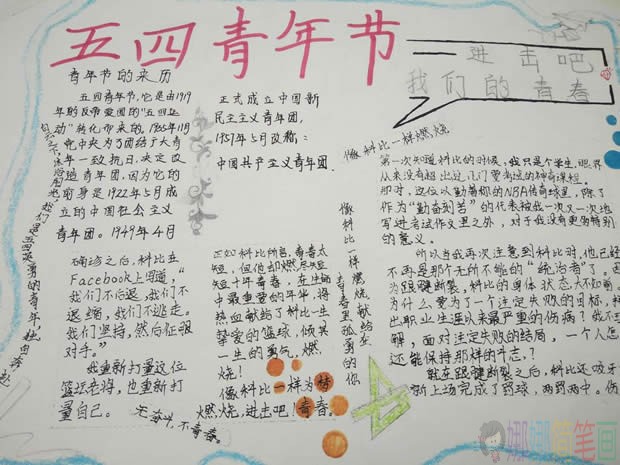 五四青年节
进击吧
我们的青春
青年节的来历
五四青年节，它是由1919
年的反帝爱国的“五四运
动”转化带来的。1935年11月
党中央为了团结广大青
年一致抗日，决定改
造青年团，因为它的
前身是1922年5月成
立的中国社会主义
青年团。1949年4月
正式成立中国新
民主主义青年团，
1957年5月改称：
中国共产主义青年团.
像科比一样燃烧
第一次知道科比的时候，我只是个学生，眼界
从来没有超出过几门要考试的神奇课程。
那时，这位以勤著称的NBA传奇球星，除了
作为“勤奋刻苦”的代表被我一次又一次地
写进考试作文里之外，对于我没有更多特别
的意义。
所以当我再次注意到科比时，他已经
不再是那个无所不能的“统治者”了。因
为跟腱断裂，科比的身体状态大不如前。
为什么要为了一个注定失败的目标，
出职业生涯以来最严重的伤病？我不
解，面对注定失败的结局，一个人怎
还能保持那样的斗志？
就在跟腱断裂之后，科比还咬牙
新上场完成了罚球，两罚两中。伤
确诊之后，科比在
Facebook上写道，“
我们不后退，我们不
退缩，我们不逃走。
我们坚持，然后征服
对手。”
我重新打量这位
篮坛老将，也重新打
量自己。
正如科比所言，青春太
短，但他却燃尽短
短十年青春，在生命
中最重要的年华，将
热血献给了科比一生
挚爱的篮球，倾其
一生的勇气，燃
烧！
像科比一样为梦
燃烧，进击吧！青春。
像科比一样燃烧献给在
青春里孤勇的你
无奋斗，不青春。
娜娜简笔画